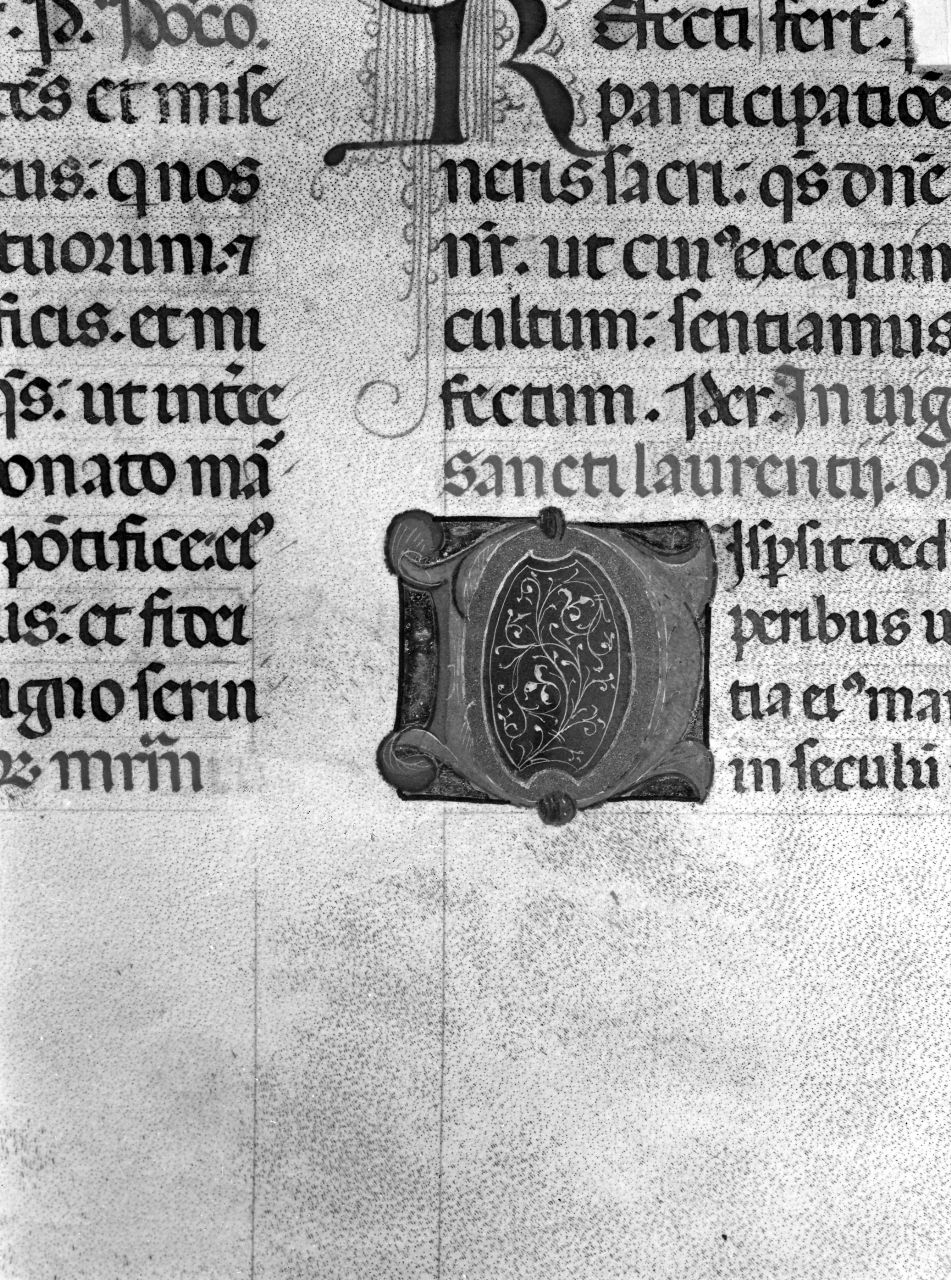 . P. Poco.
cēs et mise
eus: q nos
tuorum. ⁊
ficis. et mi
qs̄: ut intēce
onato mā
pōtifice: eiꝰ
us: et fidei
igno serui
mr̄m̄
Refecti fert.
participatiōe
neris sacri: qs̄ dn̄e
nr̄. ut cuiꝰ exequim
cultum: sentiamus
fectum. Per. In uig
sancti laurentij. of
DIspsit ded
peribus u
tia eiꝰ ma
in seculū